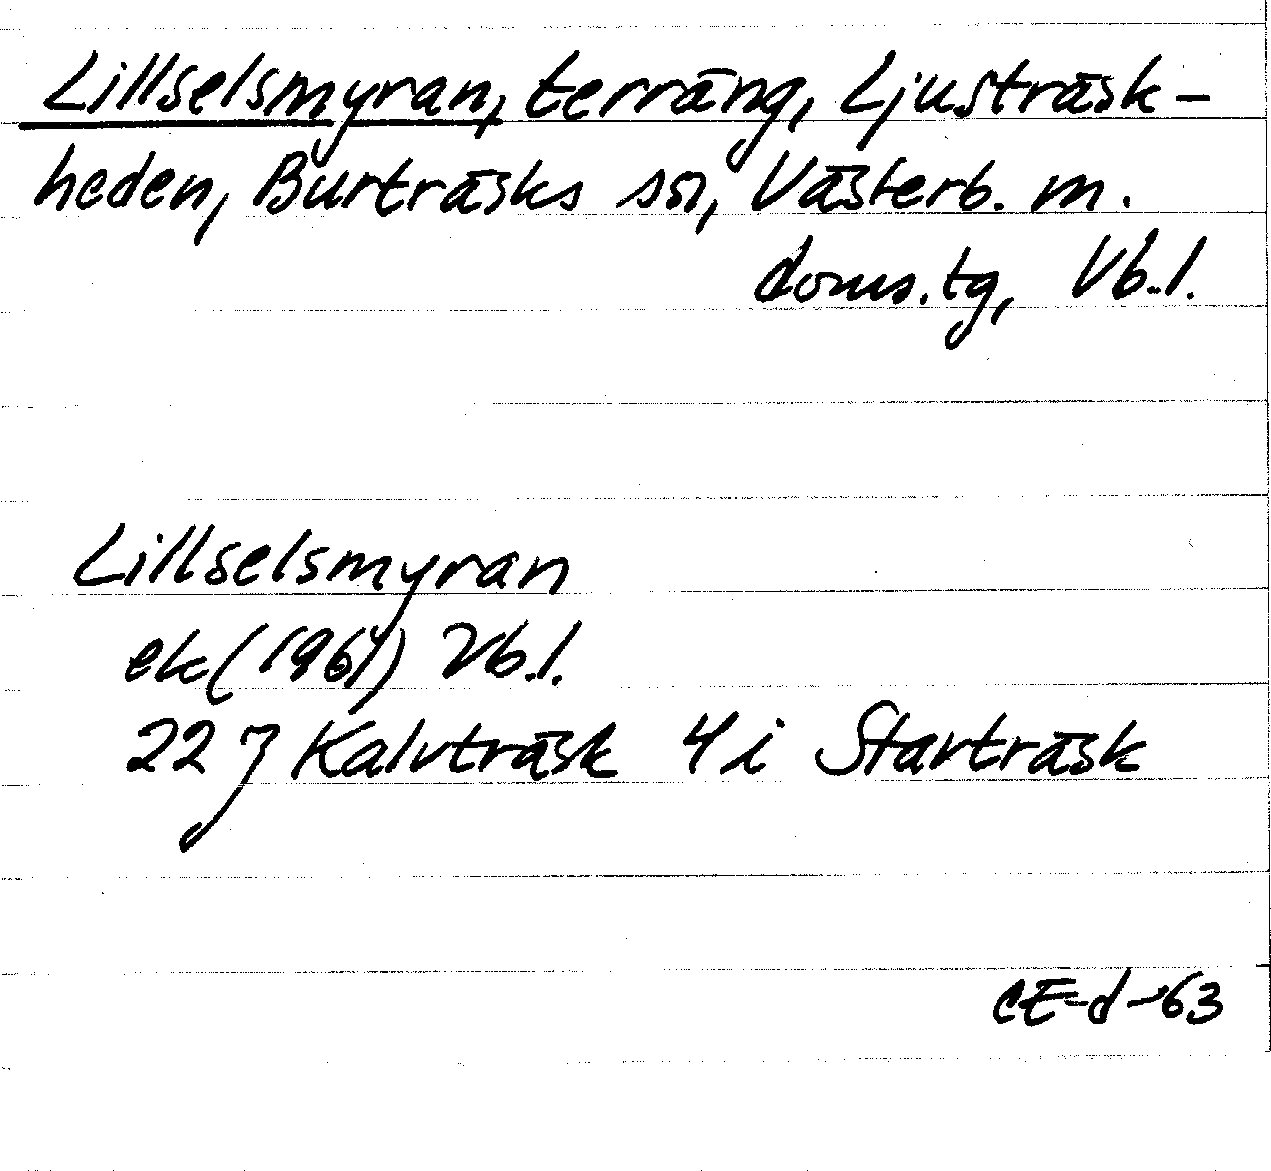 Lillselsmyran, terräng, Ljusträsk-
heden, Burträsks sn, Västerb. m.
doms.tg, Vb.l.
Lillselsmyran
ek (1961) Vb.l.
22 J Kalvträsk 4 i Stavträsk
CE-d-63